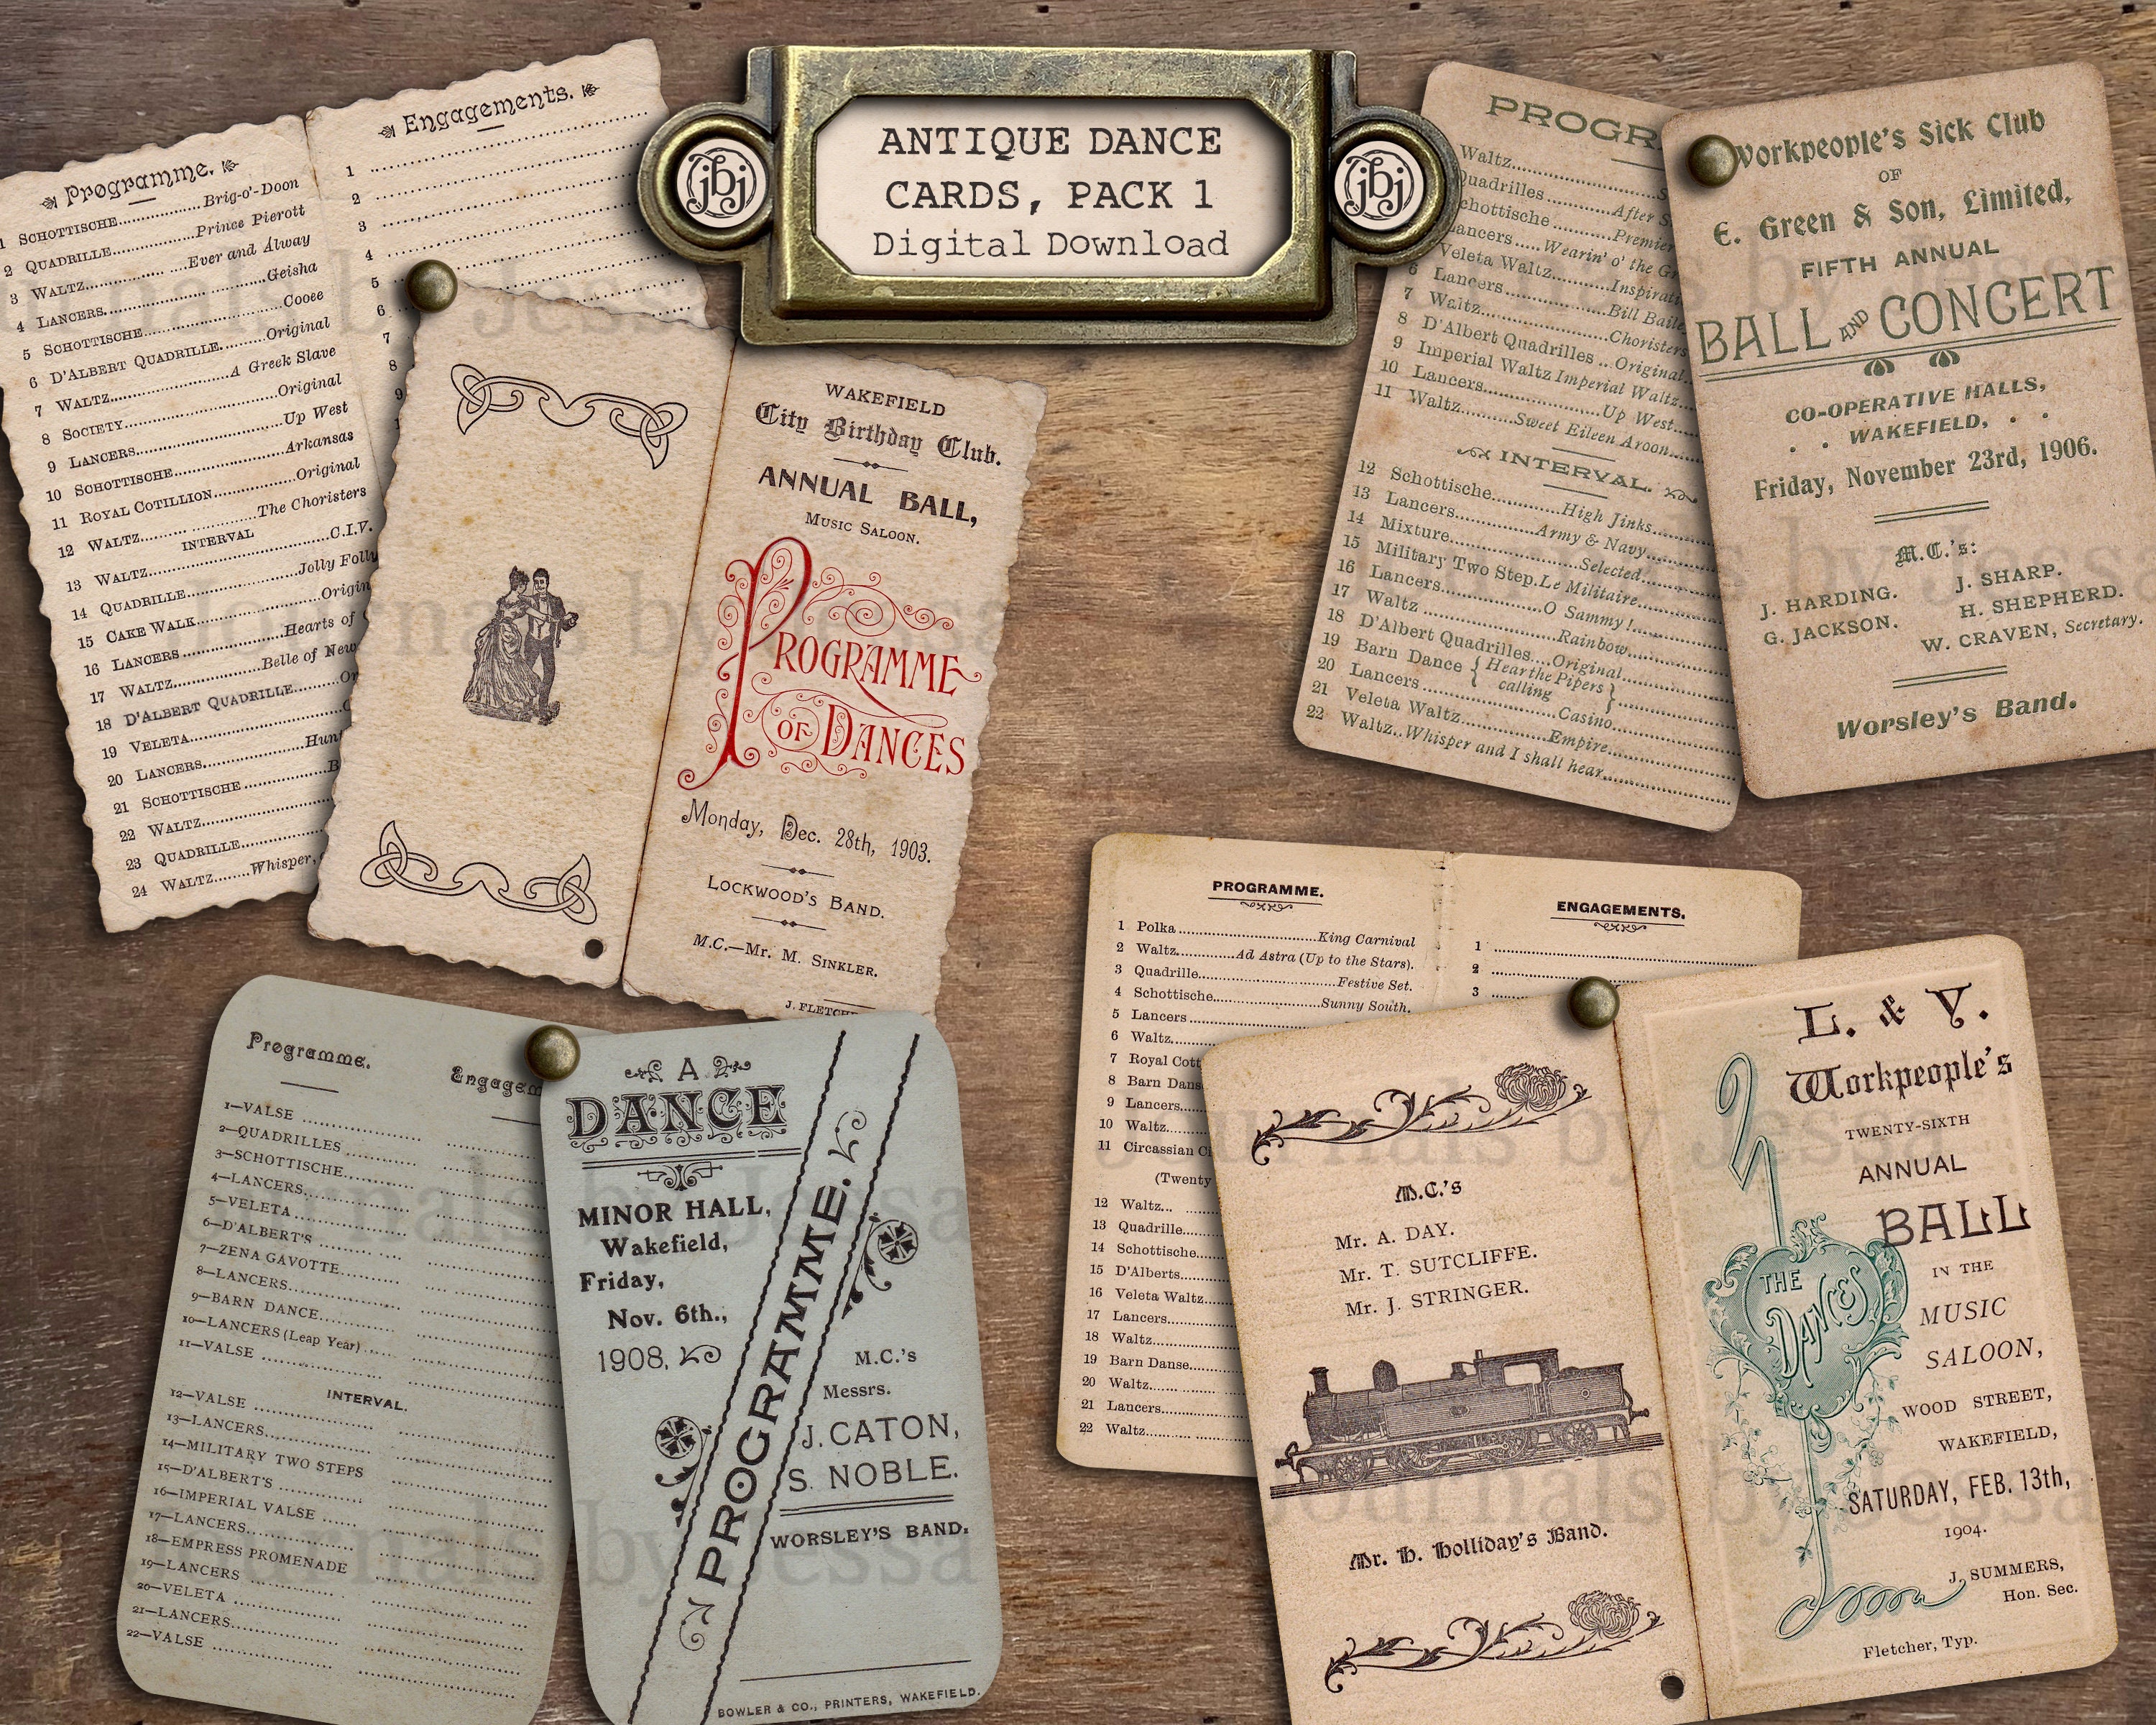 ANTIQUE DANCE
CARDS, PACK 1
Digital Download
jbj
jbj
Programme.
1 SCHOTTISCHE Brig-o'-Doon
2 QUADRILLE Prince Pierott
3 WALTZ Ever and Alway
4 LANCERS Geisha
5 SCHOTTISCHE Cooee
6 D'ALBERT QUADRILLE Original
7 WALTZ A Greek Slave
8 SOCIETY Original
9 LANCERS Up West
10 SCHOTTISCHE Arkansas
11 ROYAL COTILLION Original
12 WALTZ The Choristers
INTERVAL
13 WALTZ C.I.V.
14 QUADRILLE Jolly Folly
15 CAKE WALK
16 LANCERS Hearts of
17 WALTZ Belle of New
18 D'ALBERT QUADRILLE
19 VELETA
20 LANCERS
21 SCHOTTISCHE
22 WALTZ
23 QUADRILLE
24 WALTZ Whisper,
Engagements.
1
2
3
4
5
6
7
8
9
WAKEFIELD
City Birthday Club.
ANNUAL BALL,
MUSIC SALOON.
PROGRAMME
OF DANCES
Monday, Dec. 28th, 1903.
LOCKWOOD'S BAND.
M.C.—MR. M. SINKLER.
Waltz
Quadrilles After
Schottische Premier
Lancers Wearin' o' the
Veleta Waltz
6 Lancers Bill
7 Waltz Choristers
8 D'Albert Quadrilles Original
9 Imperial Waltz Imperial Waltz
10 Lancers Up West
11 Waltz Sweet Eileen Aroon
INTERVAL.
12 Schottische High Jinks
13 Lancers Army & Navy
14 Mixture Selected
15 Military Two Step Le Militaire
16 Lancers O Sammy!
17 Waltz Rainbow
18 D'Albert Quadrilles Original
19 Barn Dance { Hear the Pipers calling }
20 Lancers Casino
21 Veleta Waltz Empire
22 Waltz Whisper and I shall hear
Workpeople's Sick Club
OF
E. Green & Son, Limited,
FIFTH ANNUAL
BALL AND CONCERT
CO-OPERATIVE HALLS,
WAKEFIELD,
Friday, November 23rd, 1906.
M.C.'s:
J. HARDING. J. SHARP.
G. JACKSON. H. SHEPHERD.
W. CRAVEN, Secretary.
Worsley's Band.
Programme.
1—VALSE
2—QUADRILLES
3—SCHOTTISCHE
4—LANCERS
5—VELETA
6—D'ALBERT'S
7—ZENA GAVOTTE
8—LANCERS
9—BARN DANCE
10—LANCERS (Leap Year)
11—VALSE
INTERVAL.
12—VALSE
13—LANCERS
14—MILITARY TWO STEPS
15—D'ALBERT'S
16—IMPERIAL VALSE
17—LANCERS
18—EMPRESS PROMENADE
19—LANCERS
20—VELETA
21—LANCERS
22—VALSE
A
DANCE
MINOR HALL,
Wakefield,
Friday,
Nov. 6th.,
1908.
PROGRAMME.
M.C.'s
Messrs.
J. CATON,
S. NOBLE.
WORSLEY'S BAND.
BOWLER & CO., PRINTERS, WAKEFIELD.
PROGRAMME.
1 Polka King Carnival
2 Waltz Ad Astra (Up to the Stars).
3 Quadrille Festive Set.
4 Schottische Sunny South.
5 Lancers
6 Waltz
7 Royal
8 Barn
9 Lancers
10 Waltz
11 Circassian
(Twenty
12 Waltz
13 Quadrille
14 Schottische
15 D'Alberts
16 Veleta Waltz
17 Lancers
18 Waltz
19 Barn Danse
20 Waltz
21 Lancers
22 Waltz
ENGAGEMENTS.
1
2
3
M.C.'s
Mr. A. DAY.
Mr. T. SUTCLIFFE.
Mr. J. STRINGER.
Mr. H. Holliday's Band.
L. & Y.
Workpeople's
TWENTY-SIXTH
ANNUAL
BALL
IN THE
MUSIC
SALOON,
WOOD STREET,
WAKEFIELD,
SATURDAY, FEB. 13th,
1904.
J. SUMMERS,
Hon. Sec.
Fletcher, Typ.
THE
DANCES